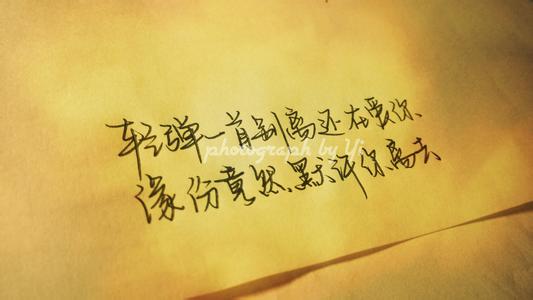 轻弹一首别离还在爱你、
缘份竟然、默许你离去
photograph by Yi